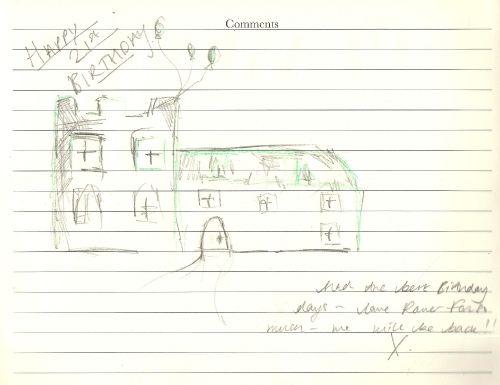 Comments
HAPPY
21st
BIRTHDAY
had the best Birthday
days – love
much – we will be back!!
X.